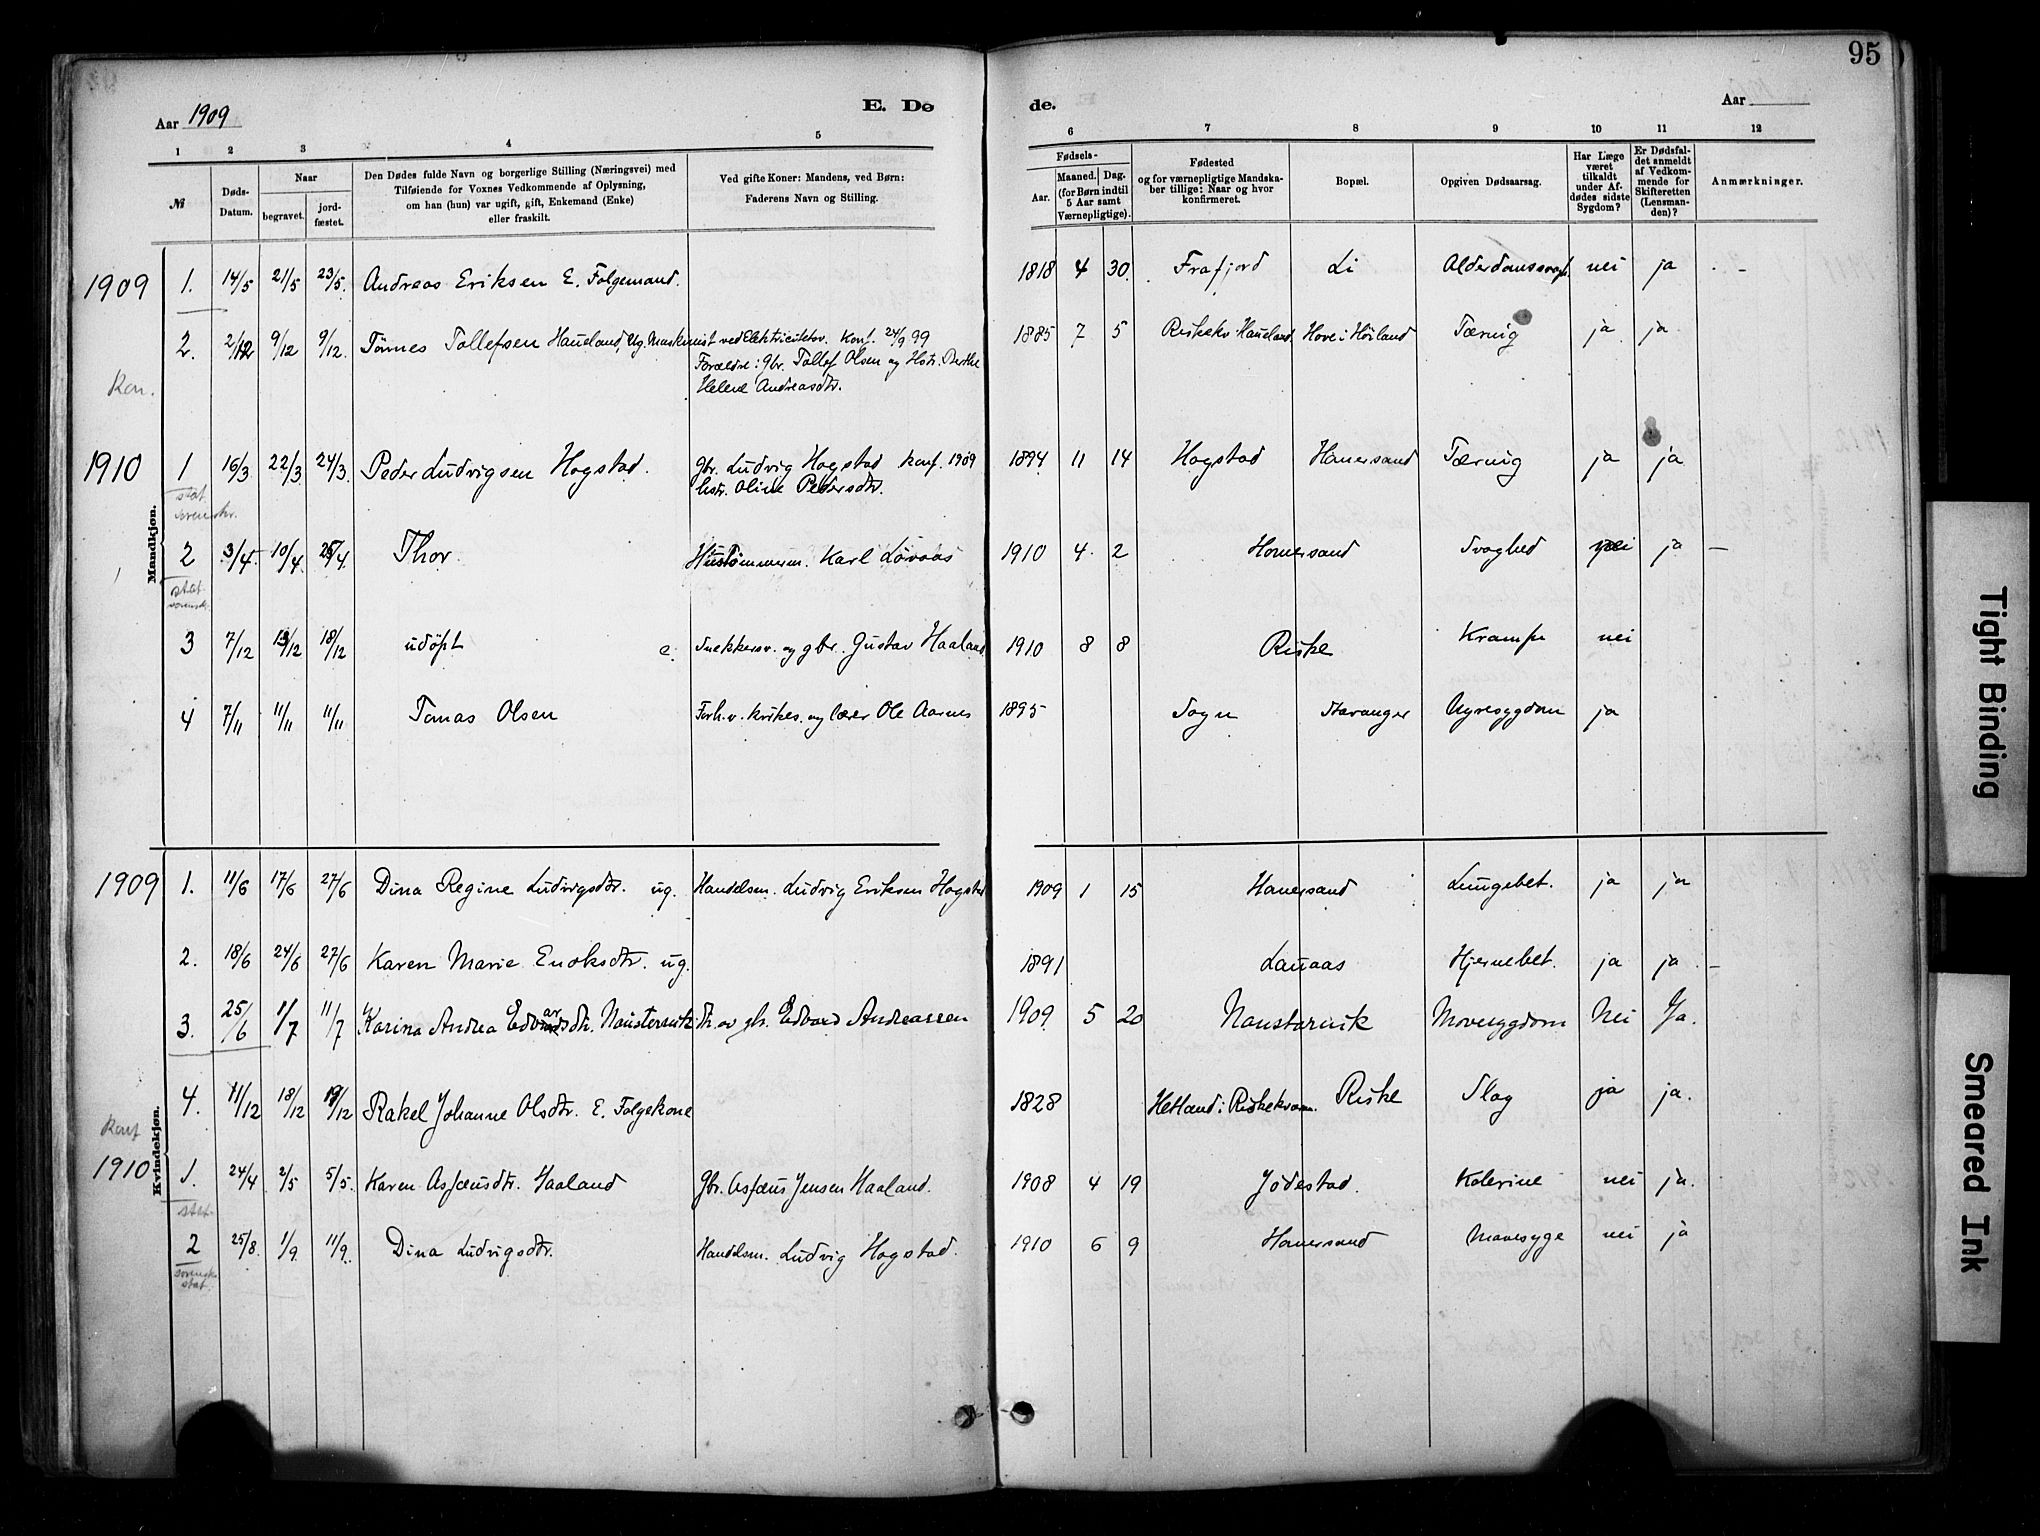 95
Aar 1909
E. Dø
de.
Aar
1 2 3 4 5 6 7 8 9 10 11 12
№
Døds-Datum.
Naar
begravet.
jord-fæstet.
Den Dødes fulde Navn og borgerlige Stilling (Næringsvei) med
Tilføiende for Voxnes Vedkommende af Oplysning,
om han (hun) var ugift, gift, Enkemand (Enke)
eller fraskilt.
Ved gifte Koner: Mandens, ved Børn:
Faderens Navn og Stilling.
Fødsels-
Aar.
Maaned. Dag.
(for Børn indtil
5 Aar samt
Værnepligtige).
Fødested
og for værnepligtige Mandska-
ber tillige: Naar og hvor
konfirmeret.
Bopæl.
Opgiven Dødsaarsag.
Har Læge
været
tilkaldt
under Af-
dødes sidste
Sygdom?
Er Dødsfal-
det anmeldt
af Vedkom-
mende for
Skifteretten
(Lensman-
den)?
Anmærkninger.
Mandkjøn.
1909 1. 14/5 21/5 23/5. Andreas Eriksen E. Folgemand. 1818 4 30 Frafjord Li nei ja -
2. 2/12 9/12 9/12. Tønnes Tollefsen Haueland, Ug. Maskinist ved Elektricitetsv. Konf. 24/9 99 1885 7 5 Riskekv Haueland Hove i Høiland Tæring ja ja
Forældre: gbr. Tollef Olsen og Hstr. Berthe
Helene Andreasdtr.
1910 1 16/3 22/3 24/3. Peder Ludvigsen Hogstad. gbr. Ludvig Hogstad konf. 1909 1894 11 14 Hogstad Hanersand Tæring ja ja
hstr. Oline Pedersdtr.
stat
sorenskr.
2 3/4 10/4 25/4 Thor. Hustømmerm. Karl Løvaas 1910 4 2 Hanersand Svaghed nei ja -
stat
sorensk.
3 7/12 13/12 18/12 udöpt e. Snekkersv. og gbr. Gustav Haaland 1910 8 8 Riske Krampe nei
4 7/11 11/11 11/11 Tomas Olsen Forh.v. kirkes. og lærer Ole Aarnes 1895 Sogn Stavanger Nyresygdom ja
Kvindekjøn.
1909 1. 11/6 17/6 27/6 Dina Regine Ludvigsdtr. ug. Handelsm. Ludvig Eriksen Hogstad 1909 1 15 Hanersand Lungebet. ja ja
2. 18/6 24/6 27/6 Karen Marie Enoksdtr. ug. 1891 Lauaas Hjernebet. ja ja -
3. 25/6 1/7 11/7 Karina Andrea Edvardsdtr. Naustervik dtr. av gb. Edvard Andreassen 1909 5 20 Naustervik Mavesygdom Nei Ja.
4. 11/12 18/12 19/12 Rakel Johanne Olsdtr. E. Folgekone 1828 Hetland i Riskekvarn. Riske Slag ja ja.
Konf
1910 1. 24/4 2/5 5/5. Karen Asfæusdtr. Haaland Gbr. Asfæus Jensen Haaland. 1908 4 19 Jödestad. Kolerine nei ja.
stat
2 25/8. 1/9 11/9. Dina Ludvigsdtr. Handelsm. Ludvig Hogstad. 1910 6 9 Hanersand Mavesyge nei ja
sorensk
stat.
Tight Binding
Smeared Ink